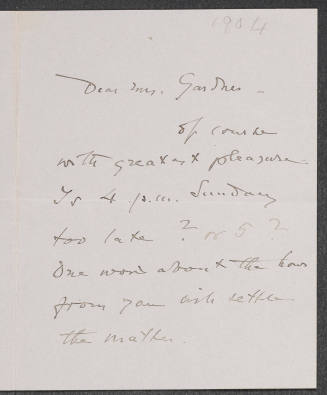 1904
Dear Mrs. Gardner -
Of course
with greatest pleasure.
Is 4 p.m. Sunday
too late? or 5?
One word about the hour
from you will settle
the matter.